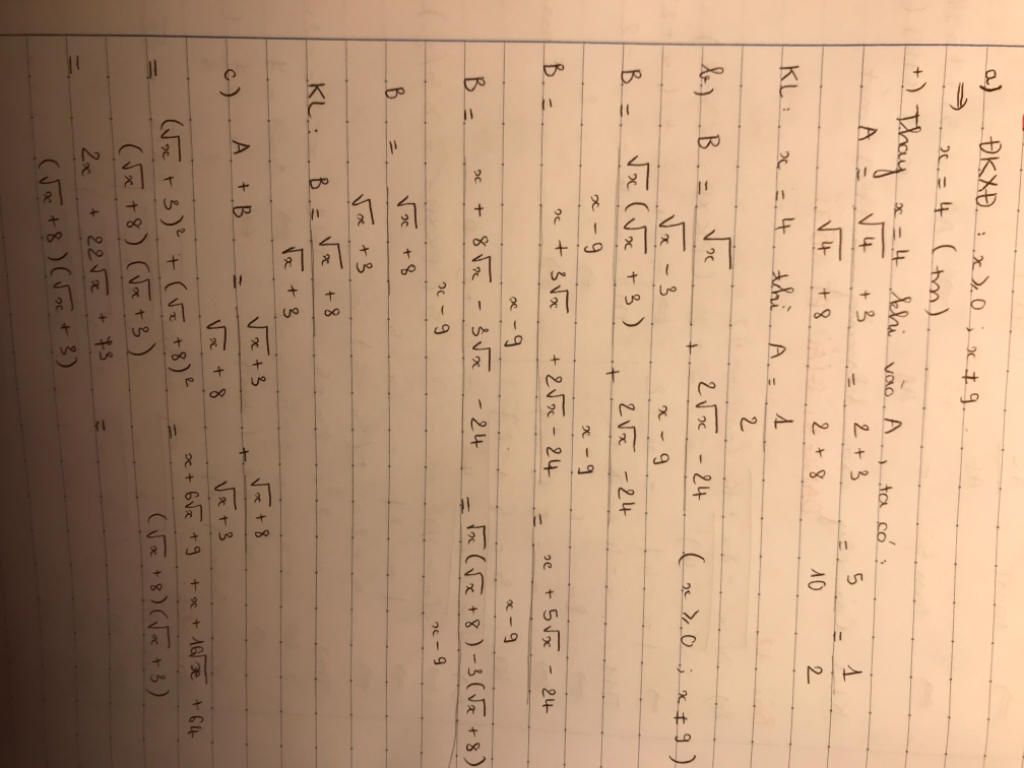 a) ĐKXĐ : x ⩾ 0 ; x ≠ 9
⇒ x = 4 (tm)
+) Thay x = 4 khi vào A, ta có:
A = (√4 + 3)/(√4 + 8) = (2 + 3)/(2 + 8) = 5/10 = 1/2
KL: x = 4 thì A = 1/2
b) B = √x/(√x − 3) + (2√x − 24)/(x − 9) (x ⩾ 0 ; x ≠ 9)
B = √x(√x + 3)/(x − 9) + (2√x − 24)/(x − 9)
B = (x + 3√x + 2√x − 24)/(x − 9) = (x + 5√x − 24)/(x − 9)
B = (x + 8√x − 3√x − 24)/(x − 9) = (√x(√x + 8) − 3(√x + 8))/(x − 9)
B = (√x + 8)/(√x + 3)
KL: B = (√x + 8)/(√x + 3)
c) A + B = (√x + 3)/(√x + 8) + (√x + 8)/(√x + 3)
= ((√x + 3)² + (√x + 8)²)/((√x + 8)(√x + 3)) = (x + 6√x + 9 + x + 16√x + 64)/((√x + 8)(√x + 3))
= (2x + 22√x + 73)/((√x + 8)(√x + 3)) =